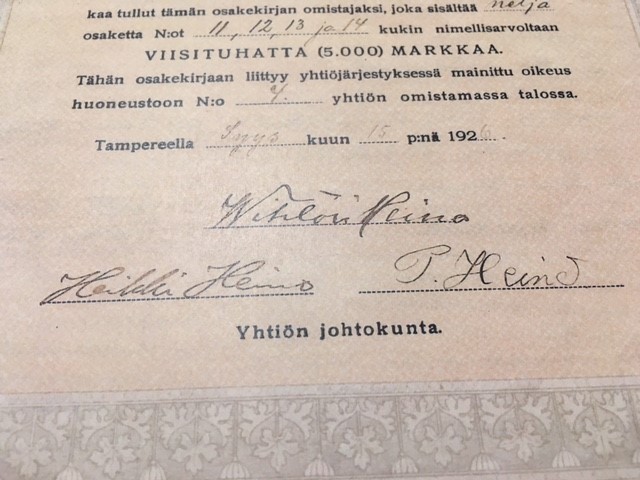 kaa tullut tämän osakekirjan omistajaksi, joka sisältää neljä
osaketta N:ot 11, 12, 13 ja 14 kukin nimellisarvoltaan
VIISITUHATTA (5.000) MARKKAA.
Tähän osakekirjaan liittyy yhtiöjärjestyksessä mainittu oikeus
huoneustoon N:o 4. yhtiön omistamassa talossa.
Tampereella Syys kuun 15 p:nä 1926.
Wihtori Heino
Heikki Heino
T. Heino
Yhtiön johtokunta.